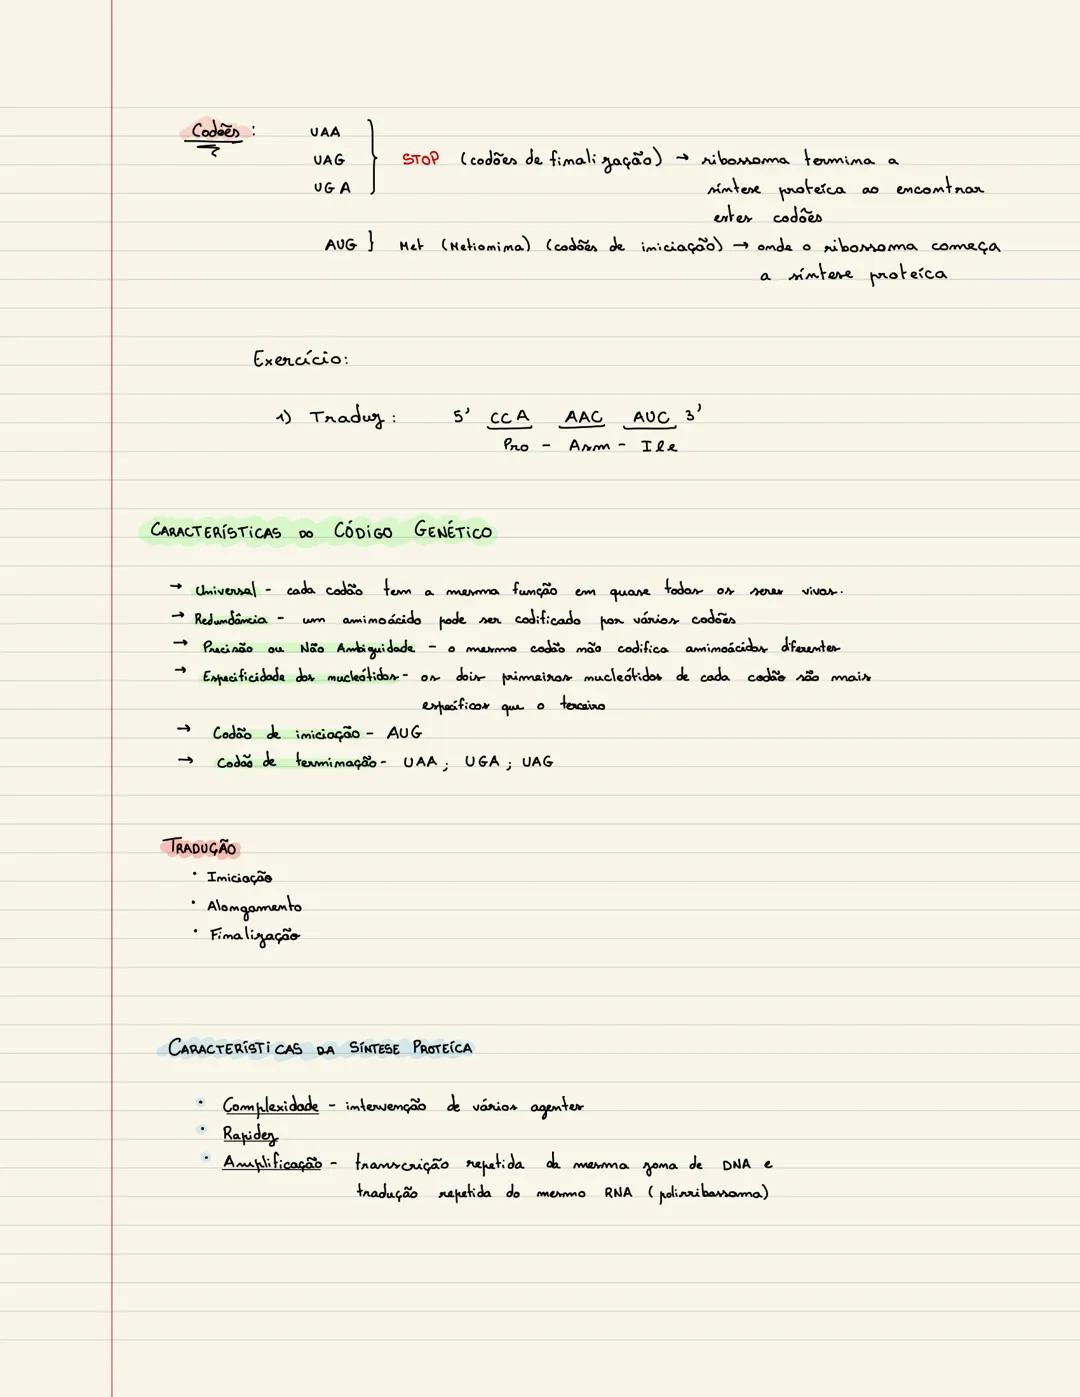 Codões : UAA
UAG } STOP (codões de finalização) → ribossoma termina a
UGA síntese proteíca ao encontrar
estes codões
AUG } Met (Metionina) (codões de iniciação) → onde o ribossoma começa
a síntese proteíca
Exercício:
1) Traduz : 5' CCA AAC AUC 3'
Pro - Asn - Ile
CARACTERÍSTICAS DO CÓDIGO GENÉTICO
→ Universal - cada codão tem a mesma função em quase todos os seres vivos.
→ Redundância - um aminoácido pode ser codificado por vários codões
→ Precisão ou Não Ambiguidade - o mesmo codão não codifica aminoácidos diferentes
→ Especificidade dos nucleótidos - os dois primeiros nucleótidos de cada codão são mais
específicos que o terceiro
→ Codão de iniciação - AUG
→ Codão de terminação - UAA ; UGA ; UAG
TRADUÇÃO
• Iniciação
• Alongamento
• Finalização
CARACTERÍSTICAS DA SÍNTESE PROTEÍCA
• Complexidade - intervenção de vários agentes
• Rapidez
• Amplificação - transcrição repetida da mesma zona de DNA e
tradução repetida do mesmo RNA (polirribossoma)